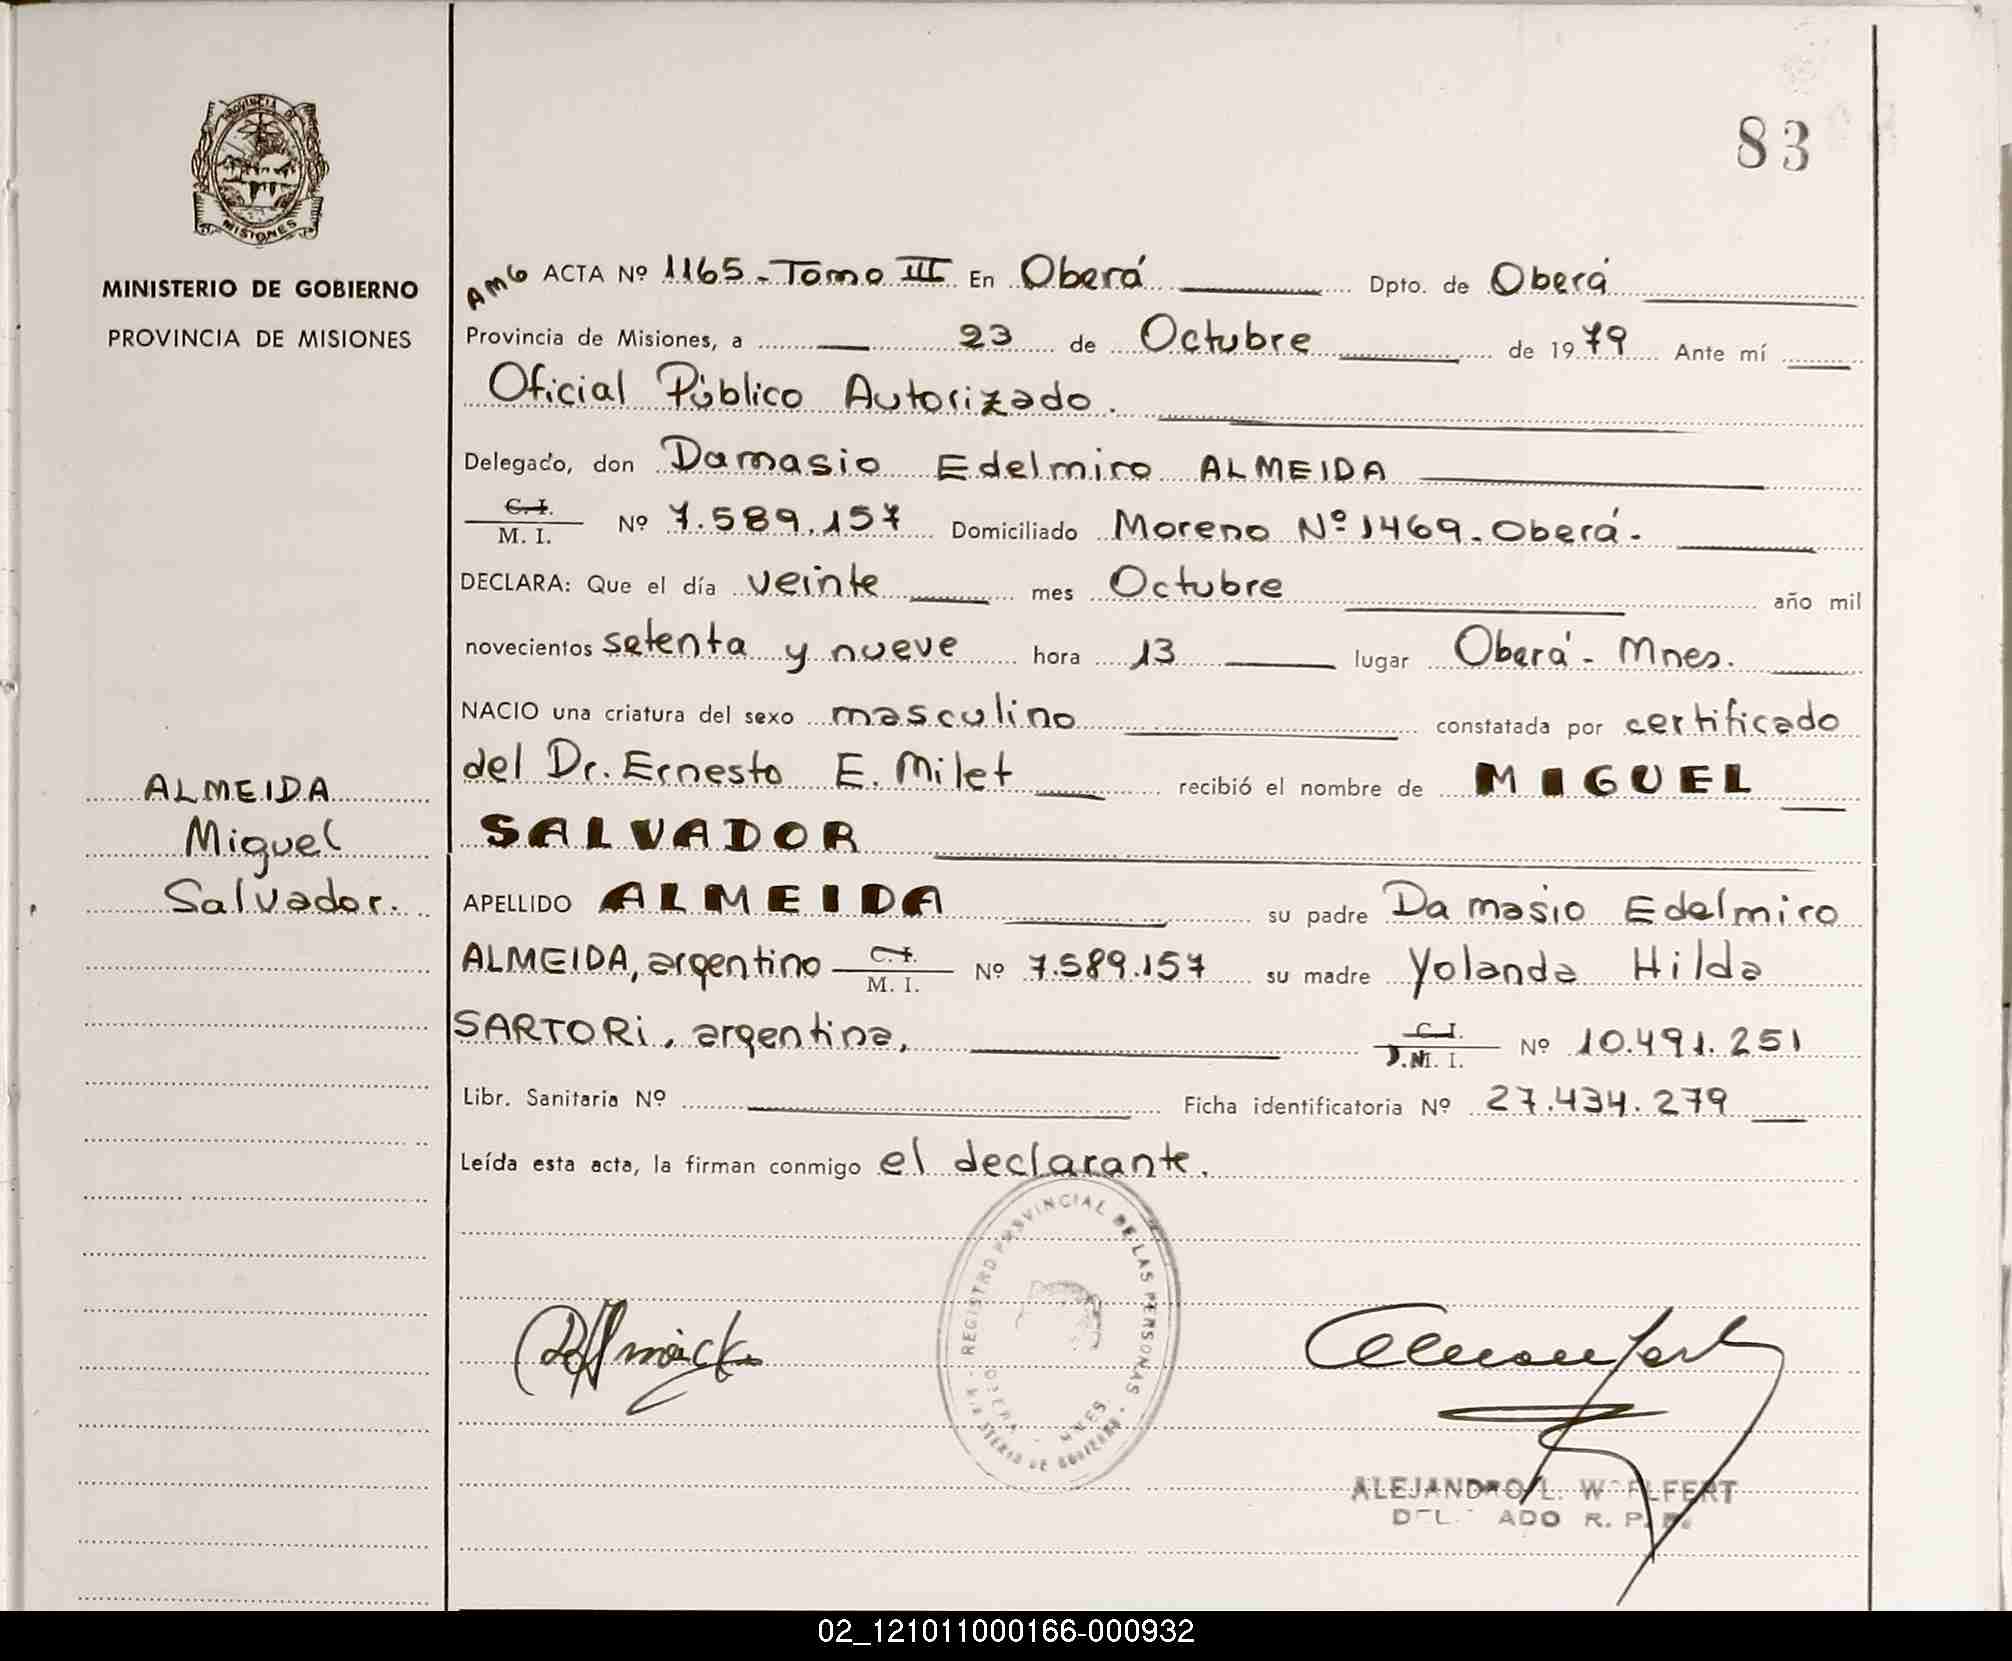 PROVINCIA DE
MISIONES
MINISTERIO DE GOBIERNO
PROVINCIA DE MISIONES
83
AMG ACTA Nº 1165 - Tomo III En Oberá Dpto. de Oberá
Provincia de Misiones, a 23 de Octubre de 1979 Ante mí
Oficial Público Autorizado.
Delegado, don Damasio Edelmiro ALMEIDA
C. I.
M. I. Nº 7.589.157 Domiciliado Moreno Nº 1469 - Oberá -
DECLARA: Que el día veinte mes Octubre año mil
novecientos setenta y nueve hora 13 lugar Oberá - Mnes.
NACIO una criatura del sexo masculino constatada por certificado
del Dr. Ernesto E. Milet recibió el nombre de MIGUEL
SALVADOR
ALMEIDA
Miguel
Salvador.
APELLIDO ALMEIDA su padre Damasio Edelmiro
ALMEIDA, argentino C. I. M. I. Nº 7.589.157 su madre Yolanda Hilda
SARTORI, argentina, C. I. D.N.I. Nº 10.491.251
Libr. Sanitaria Nº Ficha identificatoria Nº 27.434.279
Leída esta acta, la firman conmigo el declarante.
REGISTRO PROVINCIAL DE LAS PERSONAS
MNES
ALEJANDRO L. WOELFERT
DELEGADO R. P. P.
02_121011000166-000932